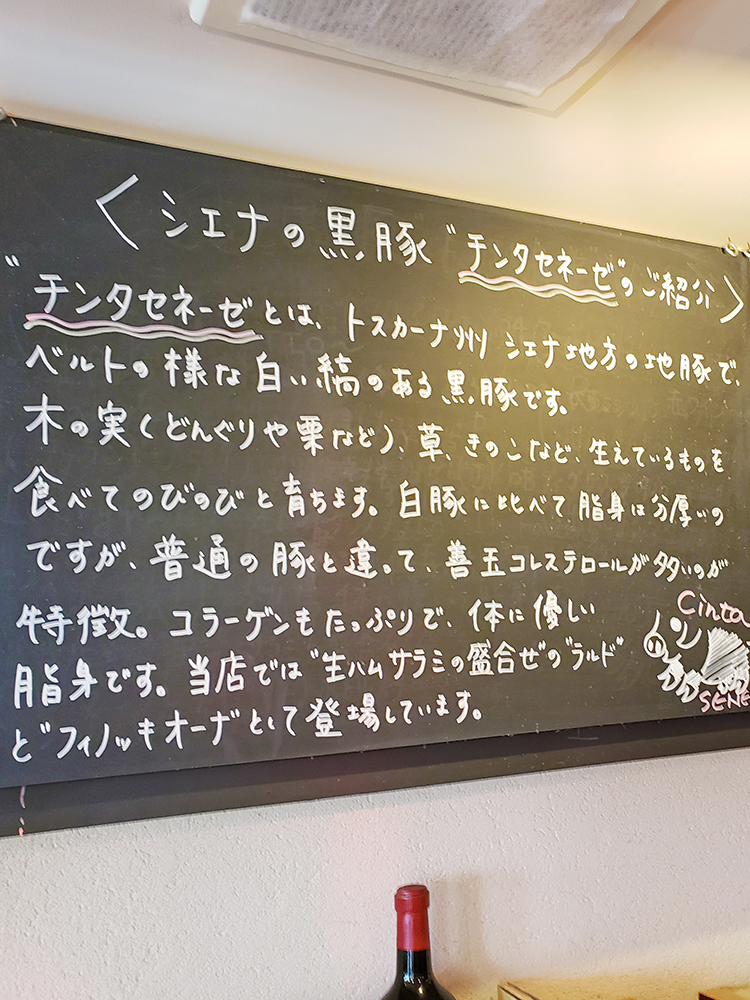 〈シエナの黒豚"チンタセネーゼ"のご紹介〉
"チンタセネーゼとは、トスカーナ州 シエナ地方の地豚で、
ベルトの様な白い縞のある黒豚です。
木の実(どんぐりや栗など)、草、きのこなど、生えているものを
食べてのびのびと育ちます。白豚に比べて脂身は分厚いの
ですが、普通の豚と違って、善玉コレステロールが多いのが
特徴。コラーゲンもたっぷりで、体に優しい
脂身です。当店では"生ハムサラミの盛合せ"の"ラルド"
と"フィノッキオーナ"として登場しています。
Cinta
SENE